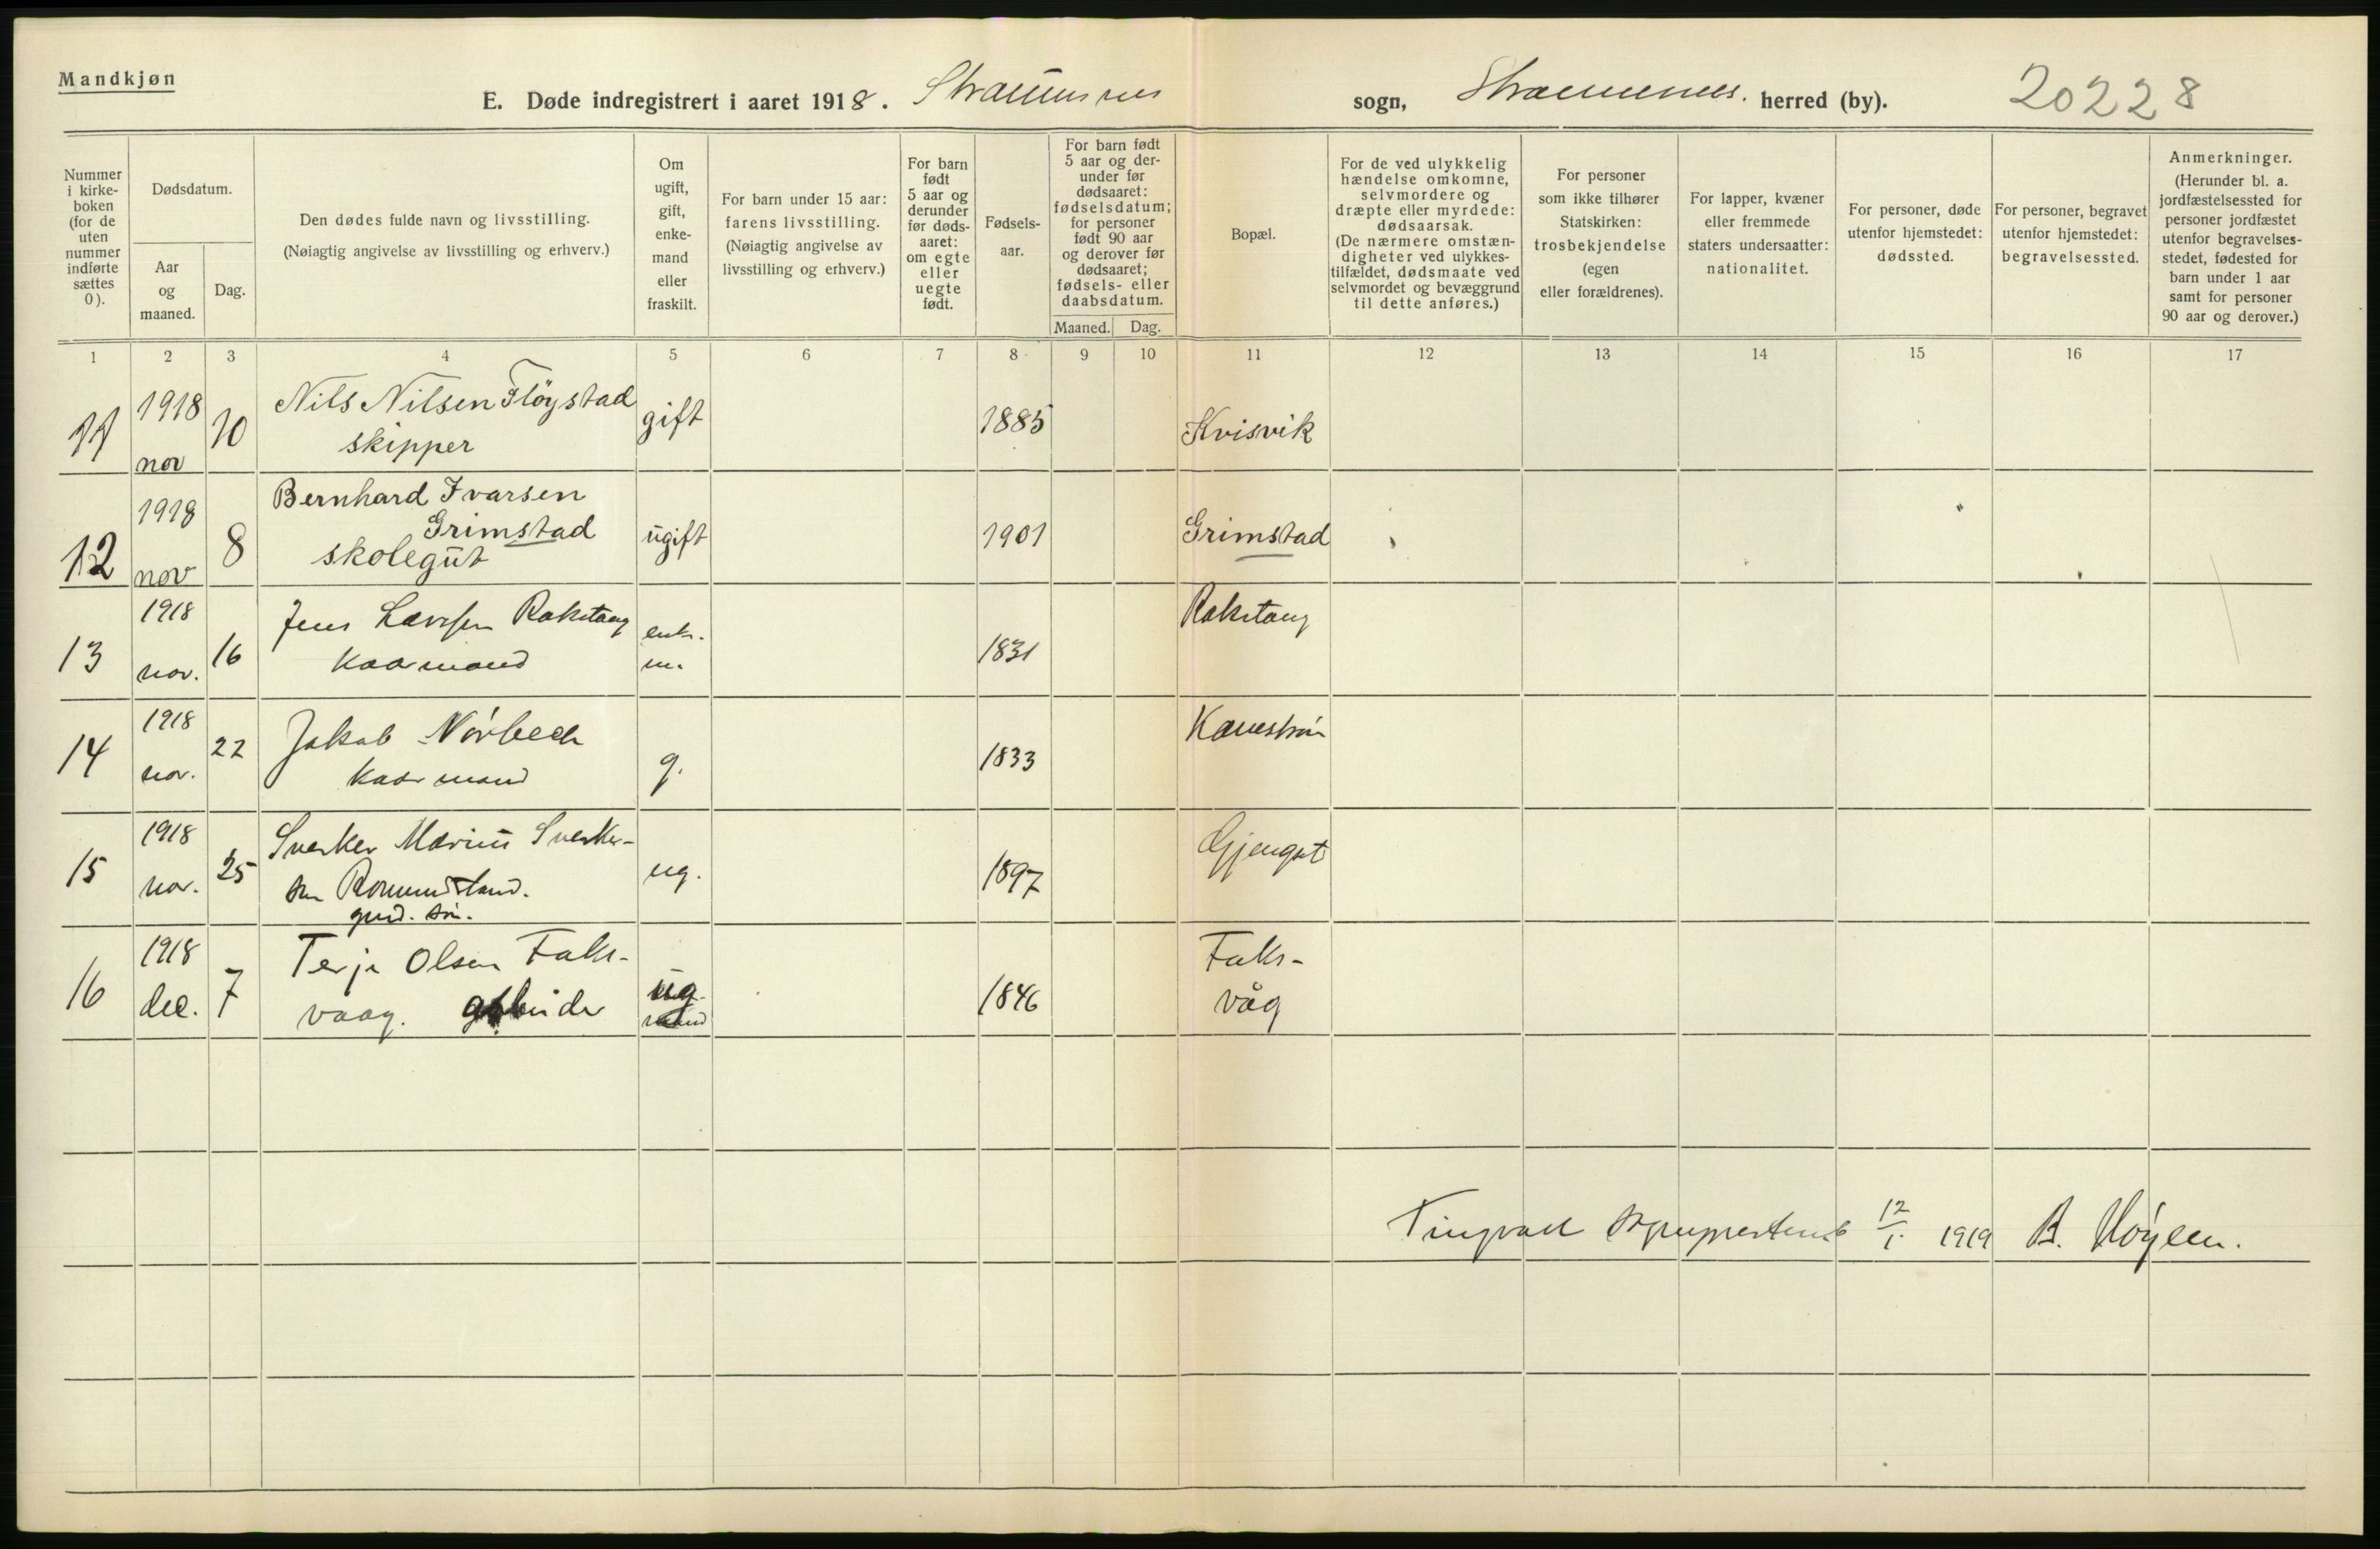 Mandkjøn
E. Døde indregistrert i aaret 1918. Straumsnes sogn, Straumsnes. herred (by). 20228
Nummer i kirke- boken (for de uten nummer indførte sættes 0).
Dødsdatum.
Aar og maaned.
Dag.
Den dødes fulde navn og livsstilling.
(Nøiagtig angivelse av livsstilling og erhverv.)
Om ugift, gift, enke- mand eller fraskilt.
For barn under 15 aar: farens livsstilling.
(Nøiagtig angivelse av livsstilling og erhverv.)
For barn født 5 aar og derunder før døds- aaret: om egte eller uegte født.
Fødsels- aar.
For barn født 5 aar og der- under før dødsaaret: fødselsdatum; for personer født 90 aar og derover før dødsaaret; fødsels- eller daabsdatum.
Maaned. Dag.
Bopæl.
For de ved ulykkelig hændelse omkomne, selvmordere og dræpte eller myrdede: dødsaarsak.
(De nærmere omstæn- digheter ved ulykkes- tilfældet, dødsmaate ved selvmordet og bevæggrund til dette anføres.)
For personer som ikke tilhører Statskirken: trosbekjendelse (egen eller forældrenes).
For lapper, kvæner eller fremmede staters undersaatter: nationalitet.
For personer, døde utenfor hjemstedet: dødssted.
For personer, begravet utenfor hjemstedet: begravelsessted.
Anmerkninger.
(Herunder bl. a. jordfæstelsessted for personer jordfæstet utenfor begravelses- stedet, fødested for barn under 1 aar samt for personer 90 aar og derover.)
1 2 3 4 5 6 7 8 9 10 11 12 13 14 15 16 17
11 1918 nov 10 Nils Nilsen Fløystad skipper gift 1885 Kvisvik
12 1918 nov 8 Bernhard Ivarsen Grimstad skolegut ugift 1901 Grimstad
13 1918 nov. 16 Jens Larssen Rakstang kaarmand enk. m. 1831 Rakstang
14 1918 nov. 22 Jakob Nørbech kaarmand g. 1833 Kanestrøm
15 1918 nov. 25 Sverker Marius Sverker- sen Romundstand. grd. søn. ug. 1897 Gjengstø
16 1918 dec. 7 Terje Olsen Faks- vaag. ug. 1846 Faks- våg
Tingvoll 12/1. 1919 B. Høyem.